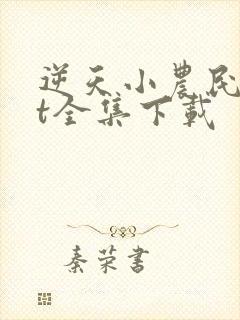 逆天小農民
t全集下載
秦荣書